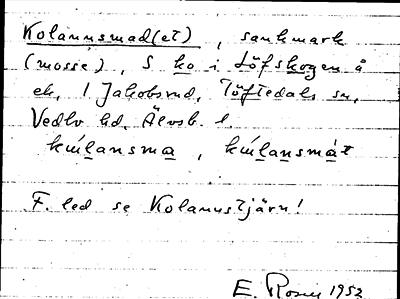 Kolannsmad(et), sankmark
(mosse), S ho i Löfskogen å
ek. 1 Jakobsrud, Töftedals sn,
Vedbo hd, Älvsb. l.
F. led se Kolannstjärn!
E. Rosen 1952